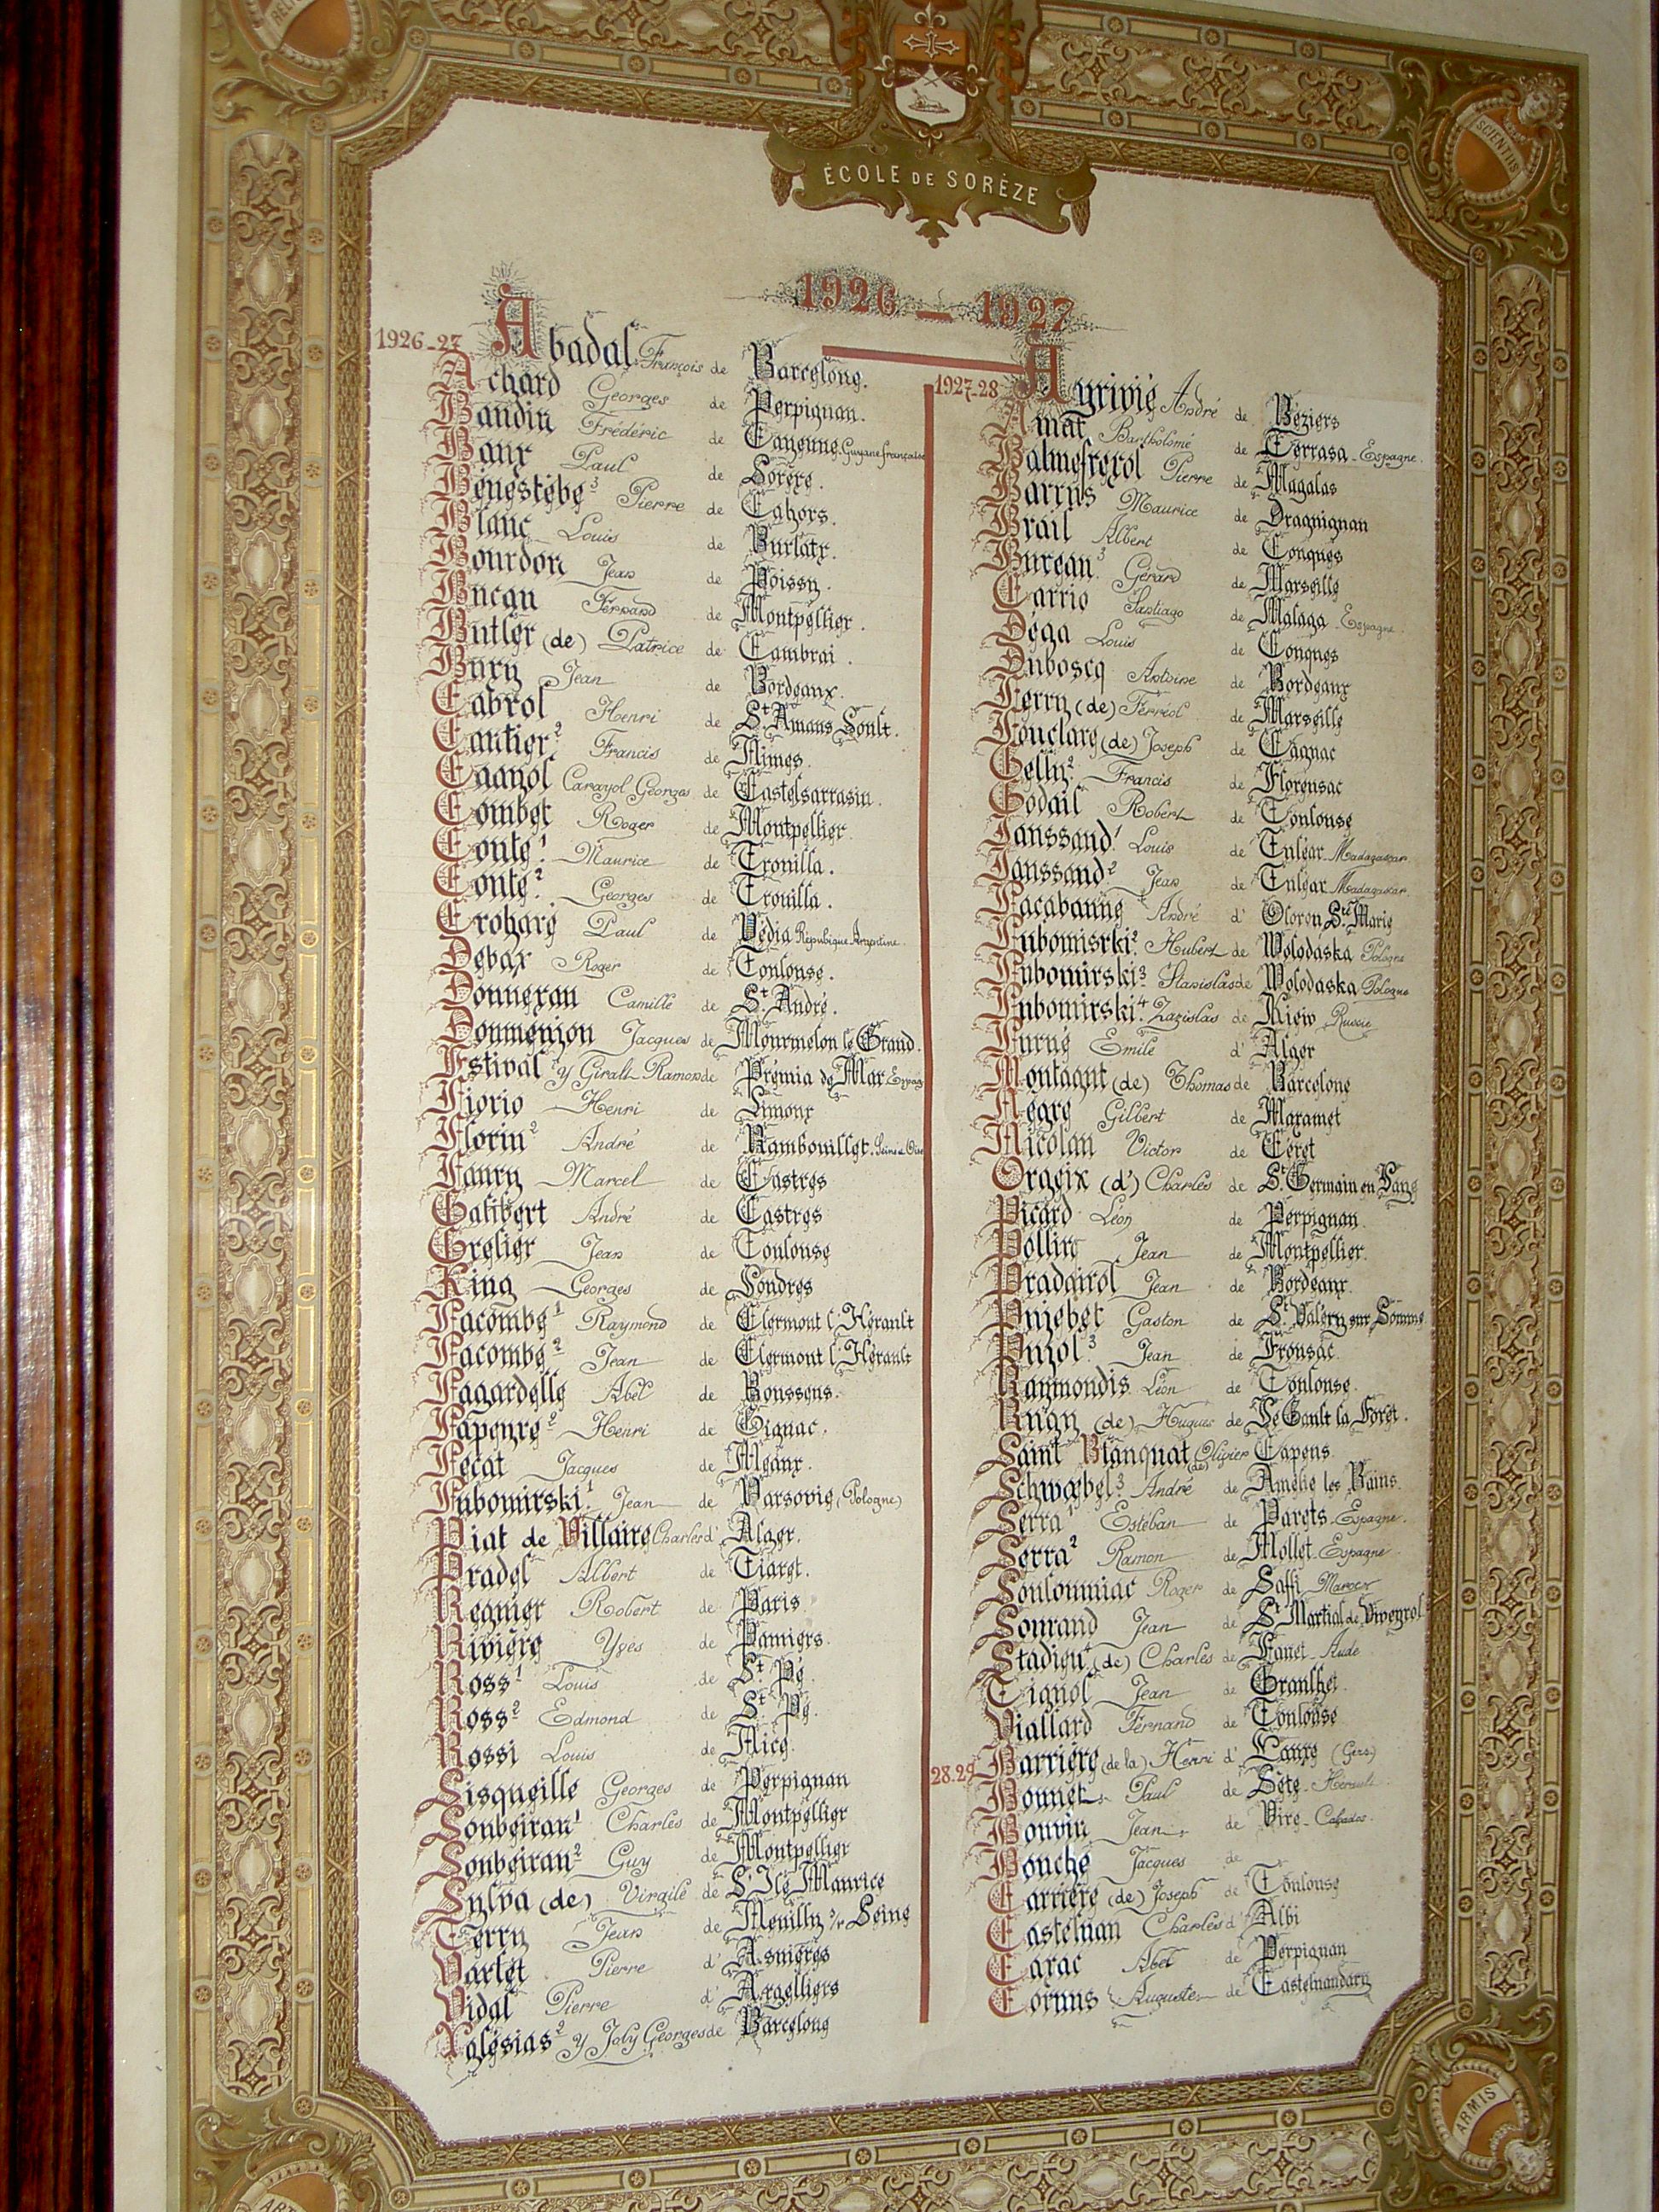 RELI
SCIENTIIS
ÉCOLE DE SORÈZE
1926 — 1927
1926-27 Abadal François de Barcelone.
Achard Georges de Perpignan.
Baudin Frédéric de Cayenne Guyane française
Baux Paul de Sorèze.
Bénestèbe 3 Pierre de Cahors.
Blanc Louis de Burlatz.
Bourdon Jean de Poissy.
Fernand de Montpellier.
Butler (de) Patrice de Cambrai.
Bury Jean de Bordeaux.
Cabrol Henri de St Amans Soult.
Cantier 2 Francis de Nimes.
Caynol Carayol Georges de Castelsarrasin.
Combet Roger de Montpellier.
Conte 1 Maurice de Trouilla.
Conte 2 Georges de Trouilla.
Crohare Paul de Védia République Argentine.
Debax Roger de Toulouse.
Donnezan Camille de St André.
Doumenjou Jacques de Mourmelon le Grand.
Estival y Giralt Ramon de Prémia de Mar
Fiorio Henri de Limoux
Florin 2 André de Rambouillet. Seine & Oise
Faury Marcel de Castres
Galibert André de Castres
Grelier Jean de Toulouse
King Georges de Londres
Lacombe 1 Raymond de Clermont l'Hérault
Lacombe 2 Jean de Clermont l'Hérault
Lagardelle Abel de Boussens.
Lapeyre 2 Henri de Gignac.
Lecat Jacques de Meaux.
Lubomirski 1 Jean de Varsovie (Pologne)
Piat de Villaire Charles d' Alger.
Pradel Albert de Tiaret.
Regnier Robert de Paris
Rivière Yves de Pamiers.
Ross 1 Louis de St Pé.
Ross 2 Edmond de St Pé.
Rossi Louis de Nice.
Sisqueille Georges de Perpignan
Soubeiran 1 Charles de Montpellier
Soubeiran 2 Guy de Montpellier
Sylva (de) Virgile de Maurice
Terry Jean de Neuilly s/r Seine
Vartet Pierre d' Asnières
Vidal Pierre d' Argelliers
Yglésias 2 y Joly Georges de Barcelone
1927-28 Ayrivié André de Béziers
Amat Bartholomé de Terrasa - Espagne.
Balmefrezol Pierre de Magalas
Barrus Maurice de Draguignan
Brail Albert de Conques
Bureau 3 Gérard de Marseille
Carrio Santiago de Malaga Espagne.
Déga Louis de Conques
Duboscq Antoine de Bordeaux
Ferry (de) Ferréol de Marseille
Fouclare (de) Joseph de Cagnac
Gelly 2 Francis de Florensac
Godail Robert de Toulouse
Janssand 1 Louis de Tuléar Madagascar
Janssand 2 Jean de Tuléar Madagascar
Lacabanne André d' Oloron Ste Marie
Lubomirski 2 Hubert de Wolodaska Pologne
Lubomirski 3 Stanislas de Wolodaska Pologne
Lubomirski 4 de Kiew Russie
Luruè Emile d' Alger
Montagut (de) Thomas de Barcelone
Negre Gilbert de Mazamet
Nicolau Victor de Céret
Orgeix (d') Charles de St Germain en Laye
Picard Léon de Perpignan.
Jean de Montpellier.
Pradairol Jean de Bordeaux.
Pujebet Gaston de St Valéry sur Somme
Pujol 3 Jean de Fronsac.
Raymondis Léon de Toulouse.
(de) Hugues de Le Gault la Forêt.
Saint Blanquat (de) Olivier Capens.
Schwœbel 3 André de Amélie les Bains.
Serra 1 Estéban de Parets - Espagne.
Serra 2 Ramon de Mollet - Espagne
Souloumiac Roger de Saffi Maroc
Sourand Jean de St Martial de Viveyrol
Stadieu 4 (de) Charles de Aude
Tignol Jean de Graulhet.
Viallard Fernand de Toulouse
28.29 Barrière (de la) Henri d' Eauze (Gers)
Bonnet Paul de Sète - Hérault
Bouvin Jean de Vire - Calvados.
Bouché Jacques de
Carrière (de) Joseph de Toulouse
Castelnau Charles d' Albi
Cazac Abel de Perpignan
Cormis Auguste de Castelnaudary
ARMIS
ART